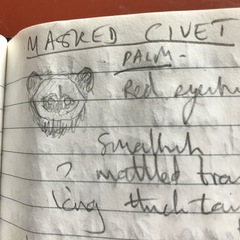 MASKED CIVET
PALM-
Red
Smallish
? mottled
long thick tai